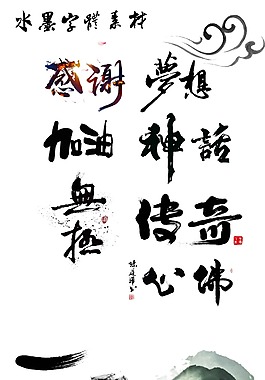 水墨字體素材
感谢
夢想
加油
神話
無極
传奇
心佛